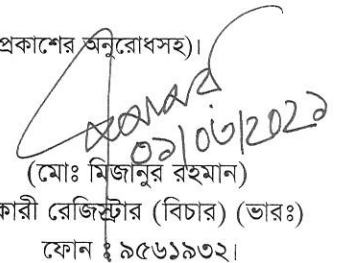 প্রকাশের অনুরোধসহ)।
০১/০৬/২০২১
(মোঃ মিজানুর রহমান)
কারী রেজিস্ট্রার (বিচার) (ভারঃ)
ফোন ঃ ৯৫৬১৯৩২।